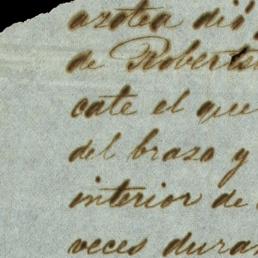 azotea dió
de Roberts
cate el que
del brazo y
interior de
veces duran